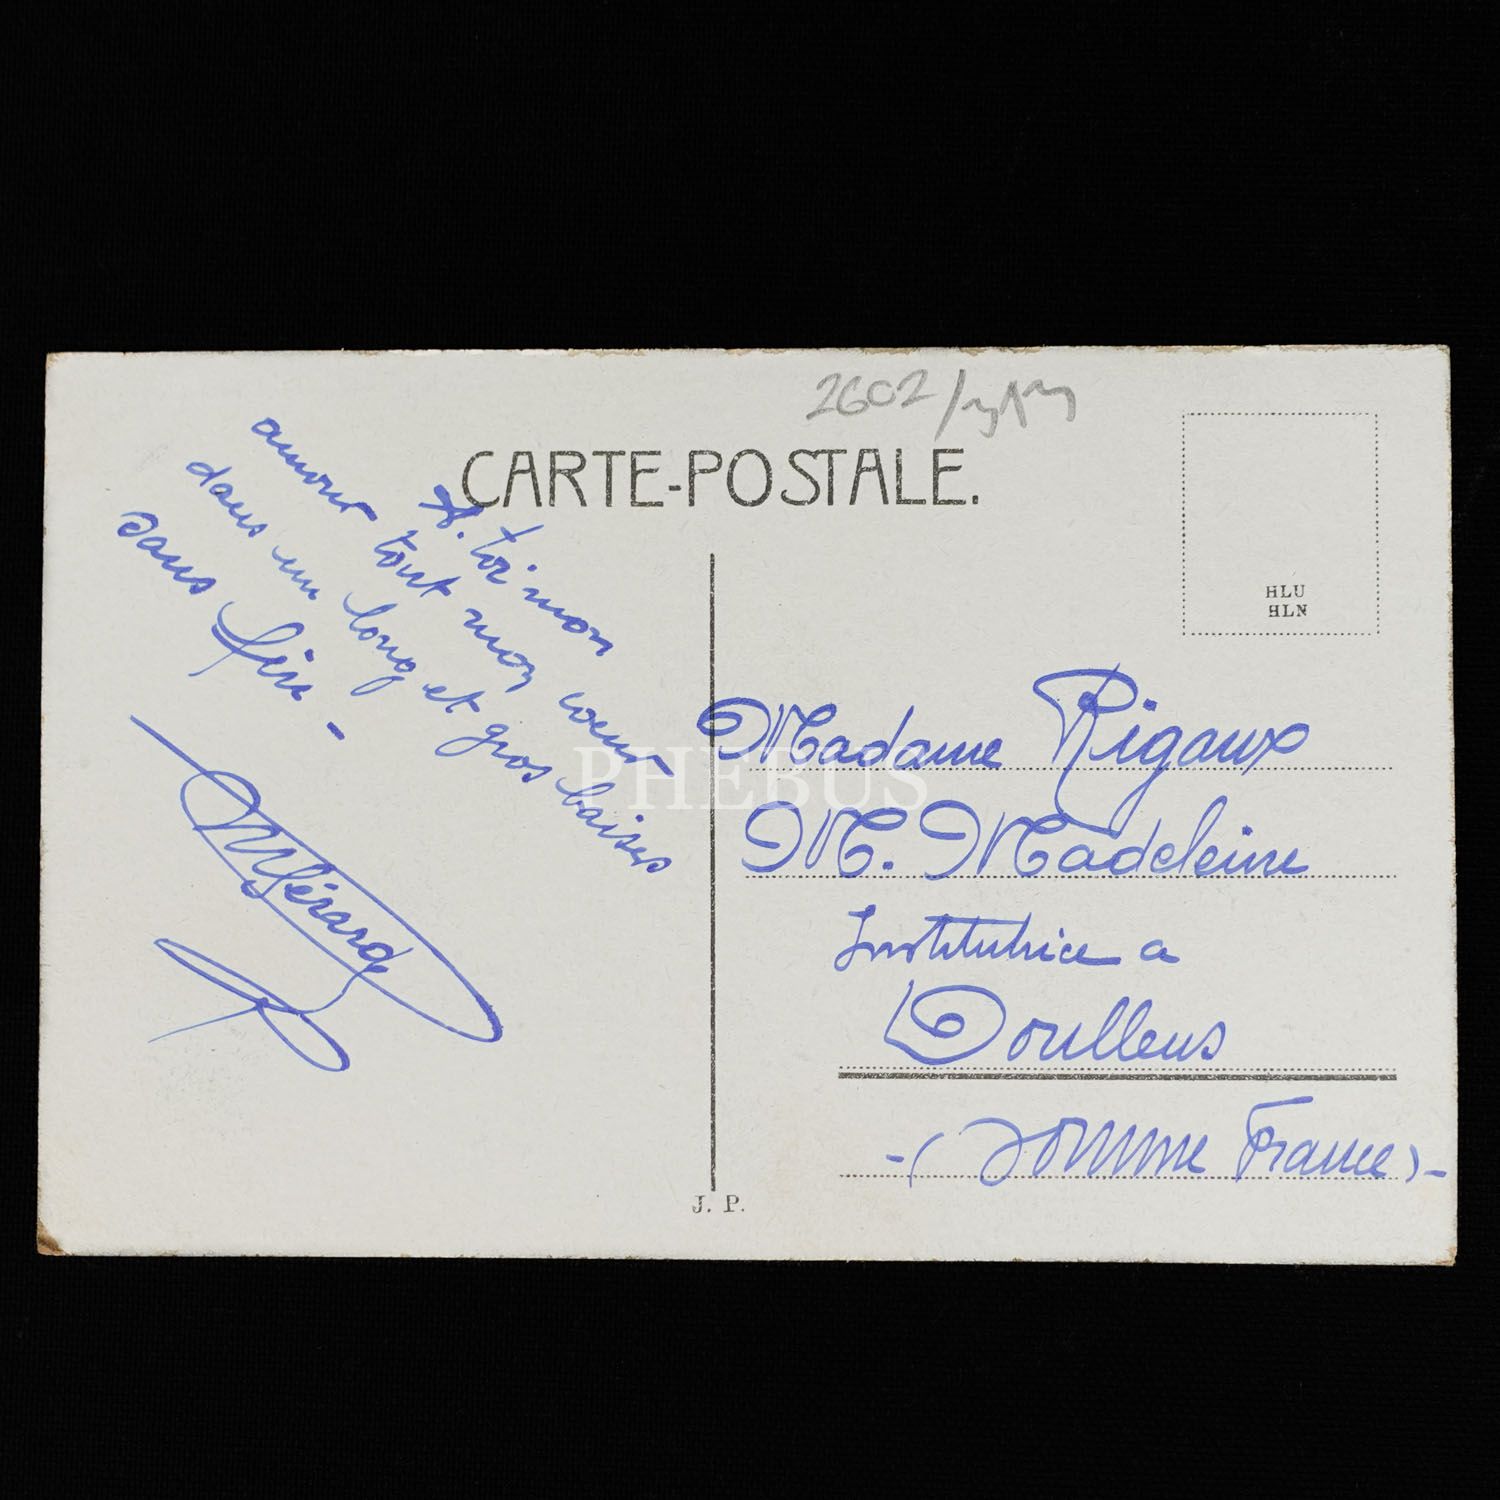 2602/
CARTE-POSTALE.
A toi mon
amour tout mon coeur
dans un long et gros baiser
sans fin -
Mérard
HLU
HLN
Madame Rigaux
M. Madeleine
Institutrice a
Doullens
-(Somme France)-
J. P.
PHEBUS